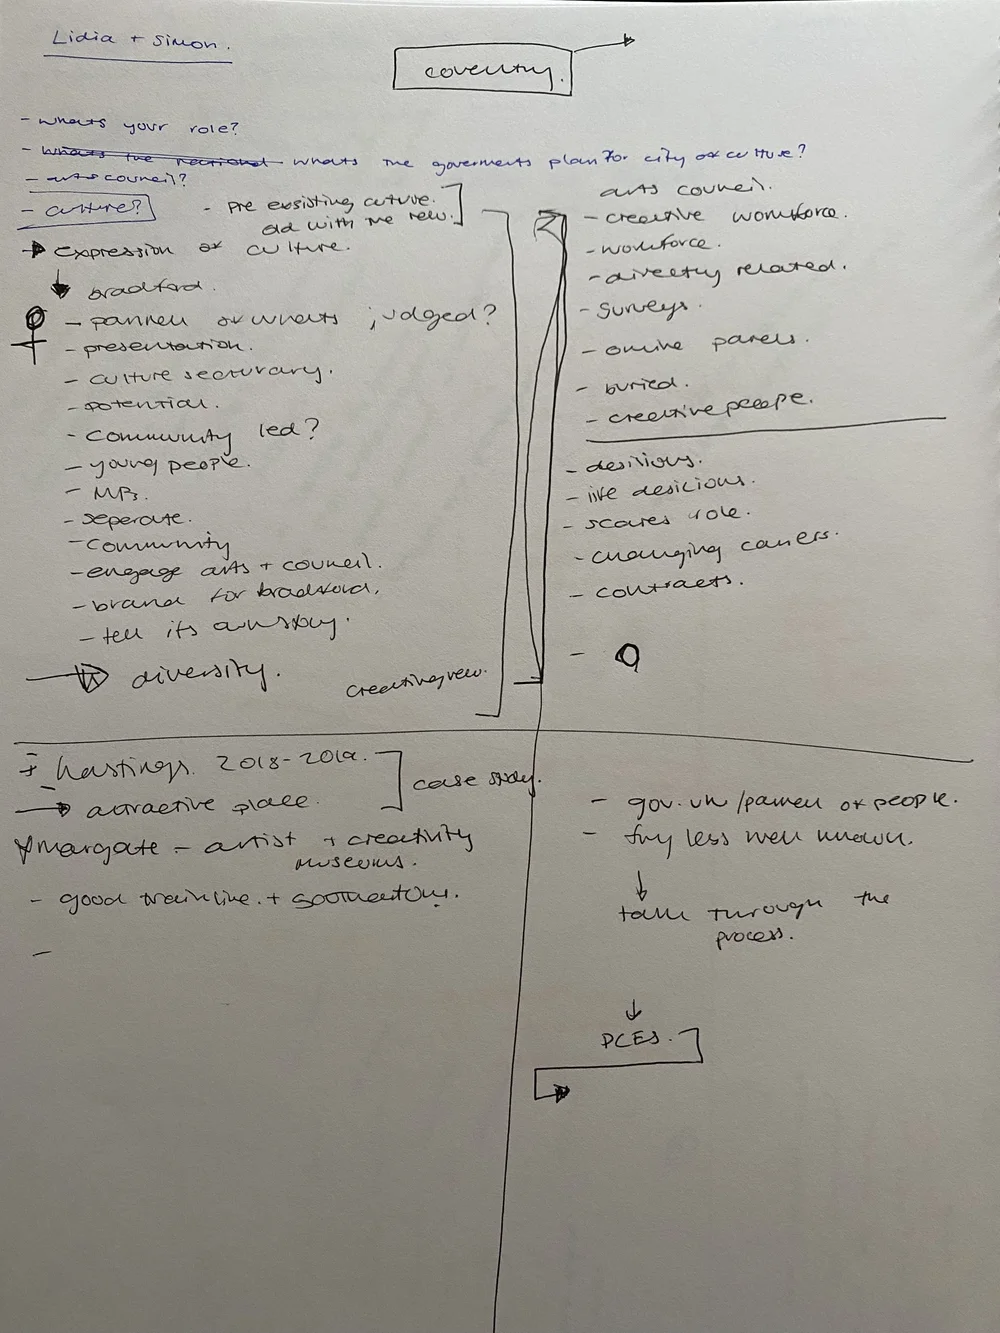 Lidia + Simon.
coventry.
- whats your role?
- whats the national whats the goverments plan for city of culture?
- arts council?
- culture? - pre exsisting culture.
old with the new.
expression of culture.
bradford.
- pannell of whats judged?
- presentation.
- culture secturary.
- potential.
- community led?
- young people.
- MPs.
- seperate.
- community
- engage arts + council.
- brand for bradford.
- tell its own story.
diversity.
creating new.
arts council.
- creative workforce.
- workforce.
- directly related.
- surveys.
- online panels.
- buried.
- creative people.
- desitions.
- like desicions.
- scares role.
- changing careers.
- contracts.
-
hastings. 2018-2019.
attractive place.
case study.
margate - artist + creativity
museums.
- good trainline. +
-
- gov.uk /pannell of people.
- try less well known.
talk through the
process.
PCES.